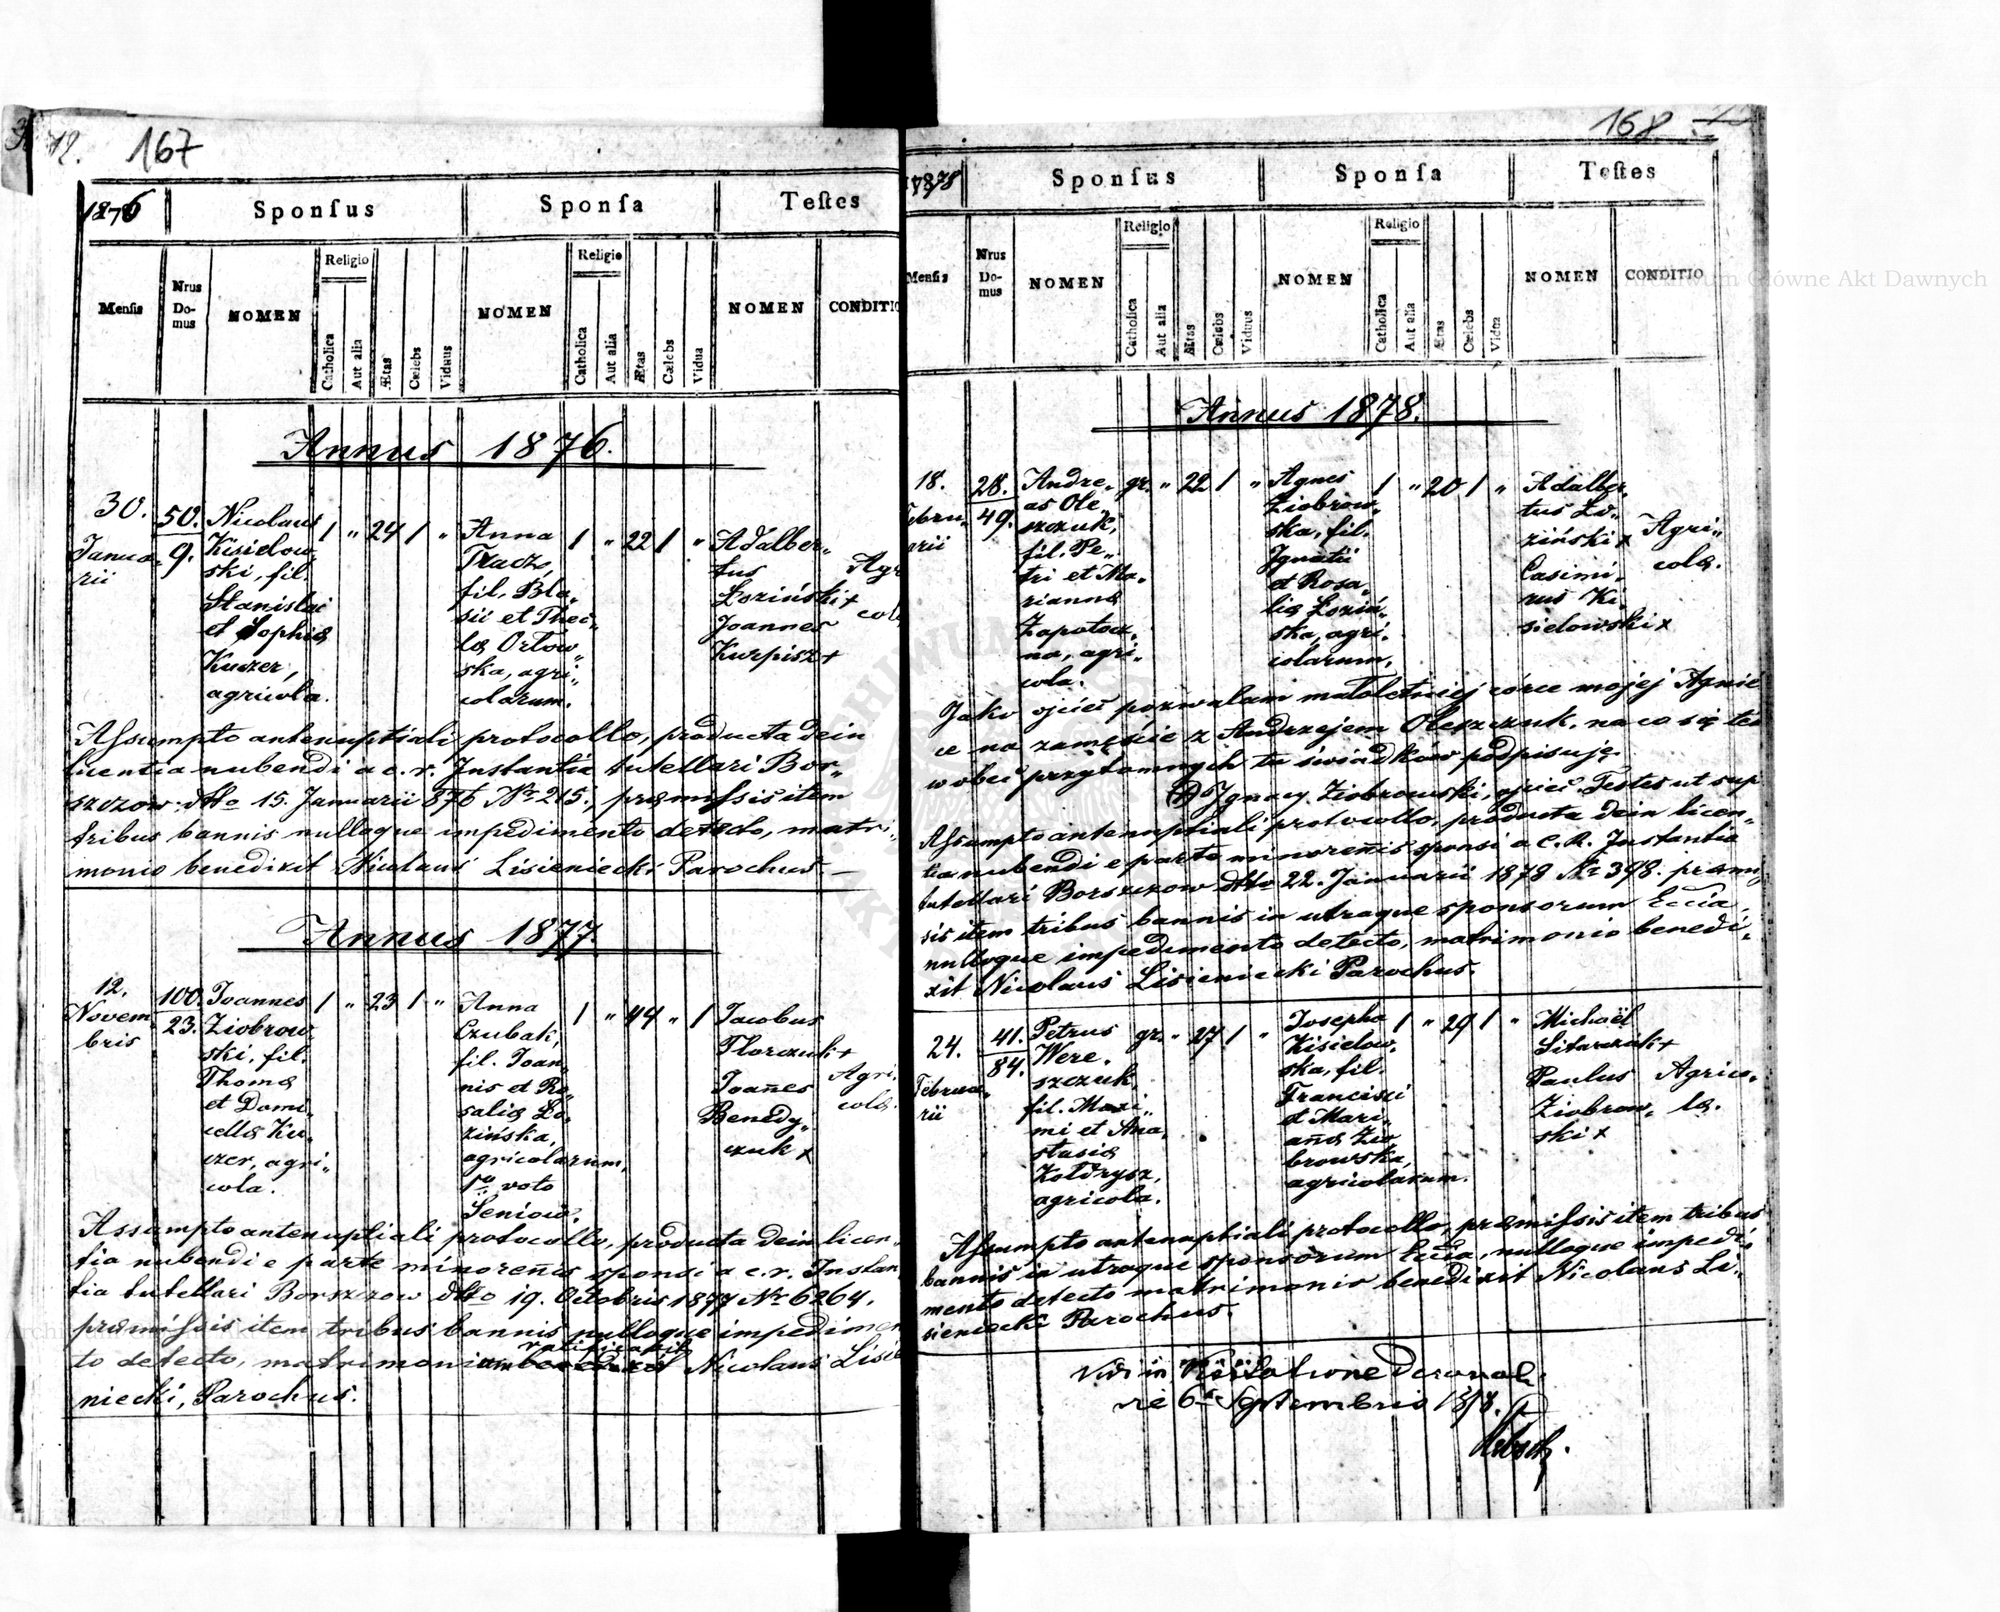 12. 167
1876
Sponſus
Sponſa
Teſtes
Menſis
Nrus Do-mus
NOMEN
Religio
Catholica
Aut alia
Ætas
Cælebs
Viduus
NOMEN
Religio
Catholica
Aut alia
Ætas
Cælebs
Vidua
NOMEN
CONDITIO
Annus 1876.
30.
Janua-
rii
50.
9.
Nicolaus
Kisielow
ski, fil.
Stanislai
et Sophiæ
Kuczer,
agricola.
1 " 24 1 "
Anna
Tracz,
fil. Bla„
sii et Thec„
læ Orłow„
ska, agri„
colarum.
1 " 22 1 "
Adalber„
tus
Łoziński +
Joannes
Kurpisz +
Agr
colæ
Assumpto antenuptiali protocollo, producta dein
licentia nubendi a c. r. Instantia tutellari Bor„
szczow: ddto 15. Januarii 876 Nr 215., præmissis item
tribus bannis nulloque impedimento detecto, matri„
monio benedixit Nicolaus Lisieniecki Parochus. —
Annus 1877.
12.
Novem
bris
100.
23.
Joannes
Ziobrow„
ski, fil.
Thomæ
et Domi„
cellæ Ku„
czer, agri„
cola.
1 " 23 1 "
Anna
Czubak,
fil. Joan„
nis et Ro„
saliæ Ło„
zińska,
agricolarum,
1o voto
Seniow.
1 " 44 " 1
Jacobus
Florczuk +
Joañes
Benedy„
czuk +
Agri„
colæ.
Assumpto antenuptiali protocollo, producta dein licen„
tia nubendi e parte minoreñis sponsi a c. r. Instan
tia tutellari Borszczow ddto 19. Octobris 1877 Nr 6264.
præmissis item tribus bannis nulloque impedimen
to detecto, matrimonium ratificavit Nicolaus Lisie
niecki, Parochus.
168
1878
Sponſus
Sponſa
Teſtes
Menſis
Nrus Do-mus
NOMEN
Religio
Catholica
Aut alia
Ætas
Cælebs
Viduus
NOMEN
Religio
Catholica
Aut alia
Ætas
Cælebs
Vidua
NOMEN
CONDITIO
Annus 1878.
18.
Febru„
arii
28.
49.
Andre„
as Ole„
szczuk,
fil. Pe„
tri et Ma„
riannæ
Zapotocz„
na, agri„
cola.
gr. " 22 1 "
Agnes
Ziobrow„
ska, fil.
Ignatii
et Rosa„
liæ Łoziń„
ska, agri„
colarum.
1 " 20 1 "
Adalber„
tus Ło„
ziński +
Casimi„
rus Ki„
sielowski +
Agri„
colæ.
Jako ojciec pozwalam małoletniej córce mojej Agnie
ce na zamęście z Andrzejem Oleszczuk, na co się też
wobec przytomnych tu świadków podpisuję.
(+) Ignacy Ziobrowski, ojciec. Testes ut sup
Assumpto antenuptiali protocollo, producta dein licen„
tia nubendi e parte minoreñis sponsi a C. R. Instantia
tutellari Borszczow ddto 22. Januarii 1878 Nr 398. præmis
sis item tribus bannis in utraque sponsorum Eccia,
nulloque impedimento detecto, matrimonio benedi„
xit Nicolaus Lisieniecki Parochus.
24.
Februa„
rii
41.
84.
Petrus
Were„
szczuk,
fil. Maxi„
mi et Ana„
stasiæ
Kołdrysz,
agricola.
gr. " 27 1 "
Josepha
Kisielow„
ska, fil.
Francisci
et Mari„
añæ Zio„
browska,
agricolarum.
1 " 29 1 "
Michaël
Sitarczuk +
Paulus
Ziobrow„
ski +
Agrico„
læ.
Assumpto antenuptiali protocollo, præmissis item tribus
bannis in utraque sponsorum Eccia, nulloque impedi„
mento detecto matrimonio benedixit Nicolaus Li„
sieniecki Parochus.
Vidi in Visitatione Decanali
die 6ta Septembris 1878.
Archiwum Główne Akt Dawnych